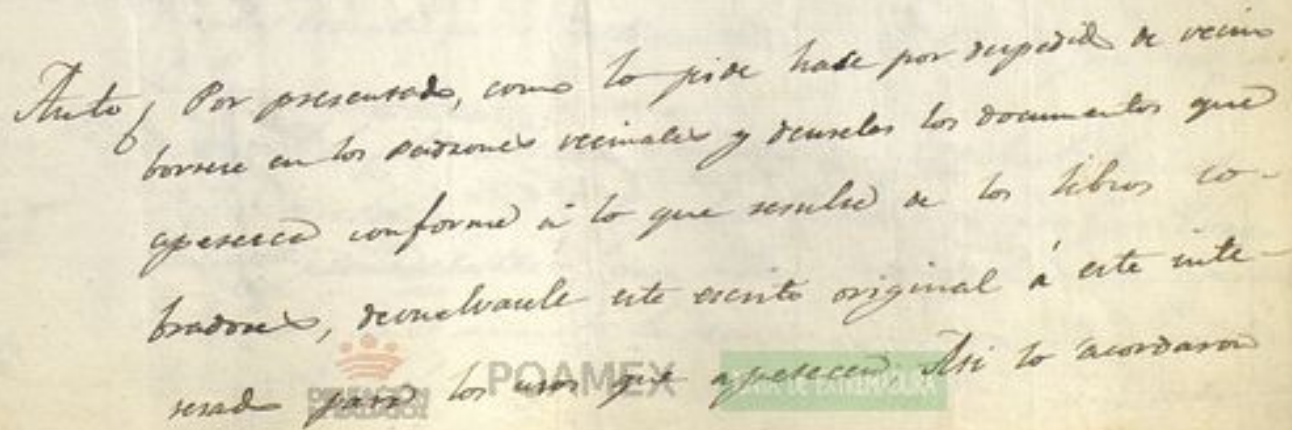 Auto, Por presentado, como lo pide hase por despedido de vecino
borrese en los Padrones vecinales y denseles los documentos que
apetesca conforme á lo que resulte de los libros co-
bradores, devuelvasele este escrito original á este inte-
resado para los usos que apetecca. Asi lo acordaron
DIPUTACIÓN
DE BADAJOZ
POAMEX